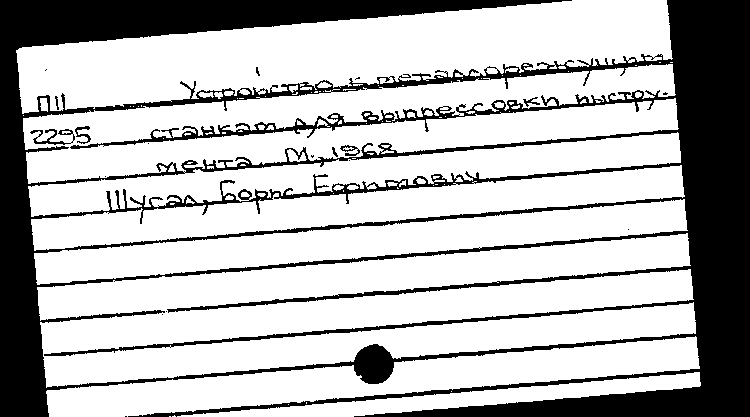 П11 Устройство к металлорежущим
2295 станкам для выпрессовки инстру-
мента. М., 1968
Шугал, Борис Ефимович.